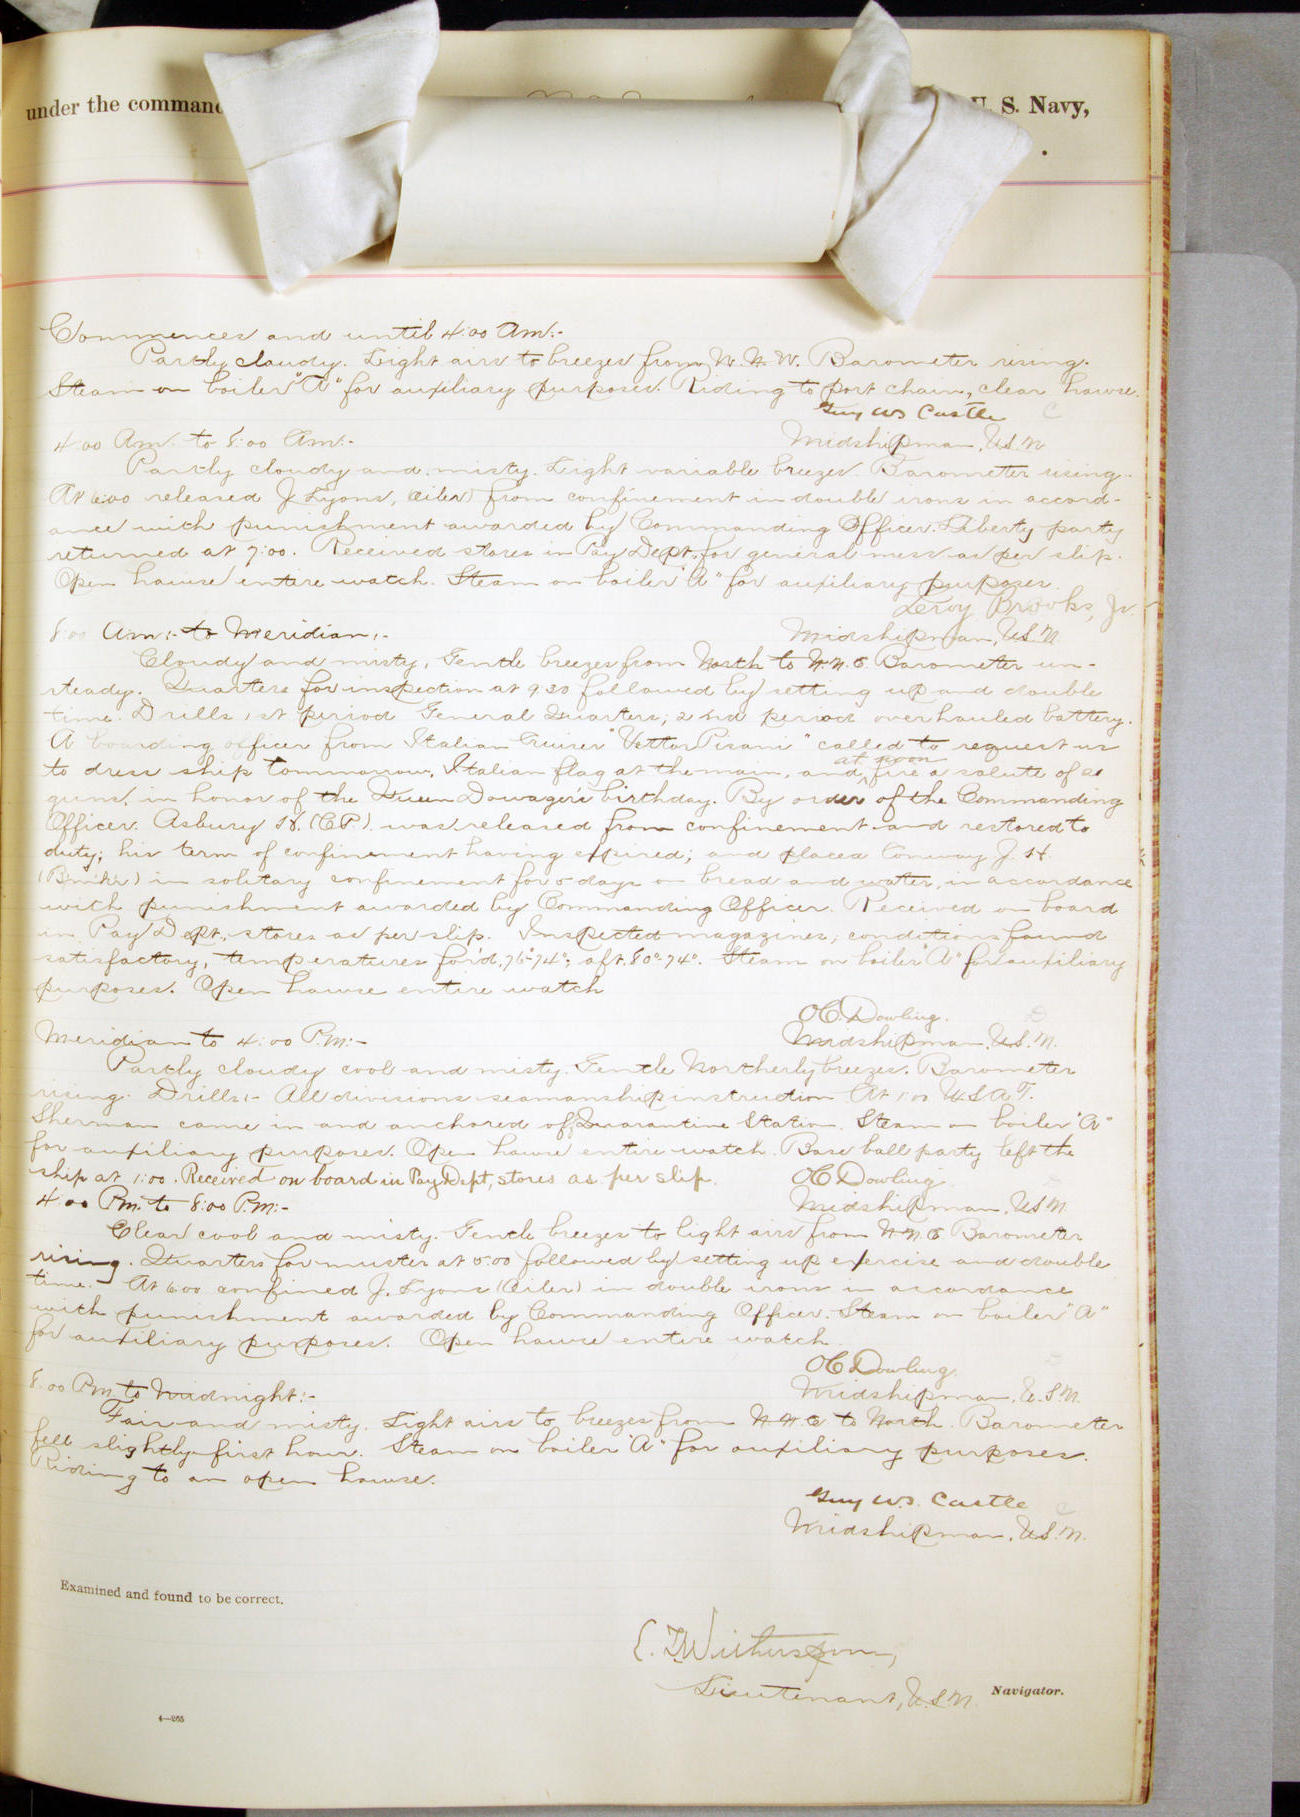 under the command
U. S. Navy,
Commences and until 4:00 Am:-
Partly cloudy. Light airs to breezes from N.N.W. Barometer rising.
Steam on boiler "A" for auxiliary purposes. Riding to port chain, clear hawse.
Guy W.S. Castle
4:00 Am. to 8:00 Am:-
Midshipman, U.S.N.
Partly cloudy and misty. Light variable breezes. Barometer rising.
At 6:00 released J. Lyons, (Oiler) from confinement in double irons in accord-
ance with punishment awarded by Commanding Officer. Liberty party
returned at 7:00. Received stores in Pay Dept. for general mess as per slip.
Open hawse entire watch. Steam on boiler "A" for auxiliary purposes.
Leroy Brooks, Jr.
8:00 Am:- to Meridian:-
Midshipman, U.S.N.
Cloudy and misty, Gentle breezes from North to N.N.E. Barometer un-
steady. Quarters for inspection at 9:30 followed by setting up and double
time. Drills, 1st period General Quarters; 2nd period overhauled battery.
A boarding officer from Italian Cruiser "Vettor Pisani" called to request us
at noon
to dress ship tommorrow, Italian flag at the main, and fire a salute of 21
guns, in honor of the Queen Dowager's birthday. By order of the Commanding
Officer. Asbury H. (C.P.) was released from confinement and restored to
duty; his term of confinement having expired; and placed Conway J. H.
in solitary confinement for 5 days on bread and water, in accordance
with punishment awarded by Commanding Officer. Received on board
in Pay Dept., stores as per slip. Inspected magazines; conditions found
satisfactory, temperatures for'd, 76°-74°; aft. 80°-74°. Steam on boiler "A" for auxiliary
purposes. Open hawse entire watch
O.C. Dowling.
Meridian to 4:00 P.M:-
Midshipman, U.S.N.
Partly cloudy cool and misty. Gentle Northerly breezes. Barometer
rising. Drills:- All divisions seamanship instruction At 1:00 U.S.A.T.
Sherman came in and anchored off Quarantine Station. Steam on boiler "A"
for auxiliary purposes. Open hawse entire watch. Base ball party left the
ship at 1:00. Received on board in Pay Dept, stores as per slip.
O.C. Dowling
4:00 Pm. to 8:00 P.M:-
Midshipman, U.S.N.
Clear cool and misty. Gentle breezes to light airs from N.N.E Barometer
rising. Quarters for muster at 5:00 followed by setting up exercise and double
time. At 6:00 confined J. Lyons (Oiler) in double irons in accordance
with punishment awarded by Commanding Officer. Steam on boiler "A"
for auxiliary purposes. Open hawse entire watch
O.C. Dowling.
8:00 Pm. to Midnight:-
Midshipman, U.S.N.
Fair and misty. Light airs to breezes from N.N.E to North. Barometer
fell slightly first hour. Steam on boiler "A" for auxiliary purposes.
Riding to an open hawse.
Guy W.S. Castle
Midshipman, U.S.N.
Examined and found to be correct.
E. T. Witherspoon,
Lieutenant, U.S.N. Navigator.
4—265